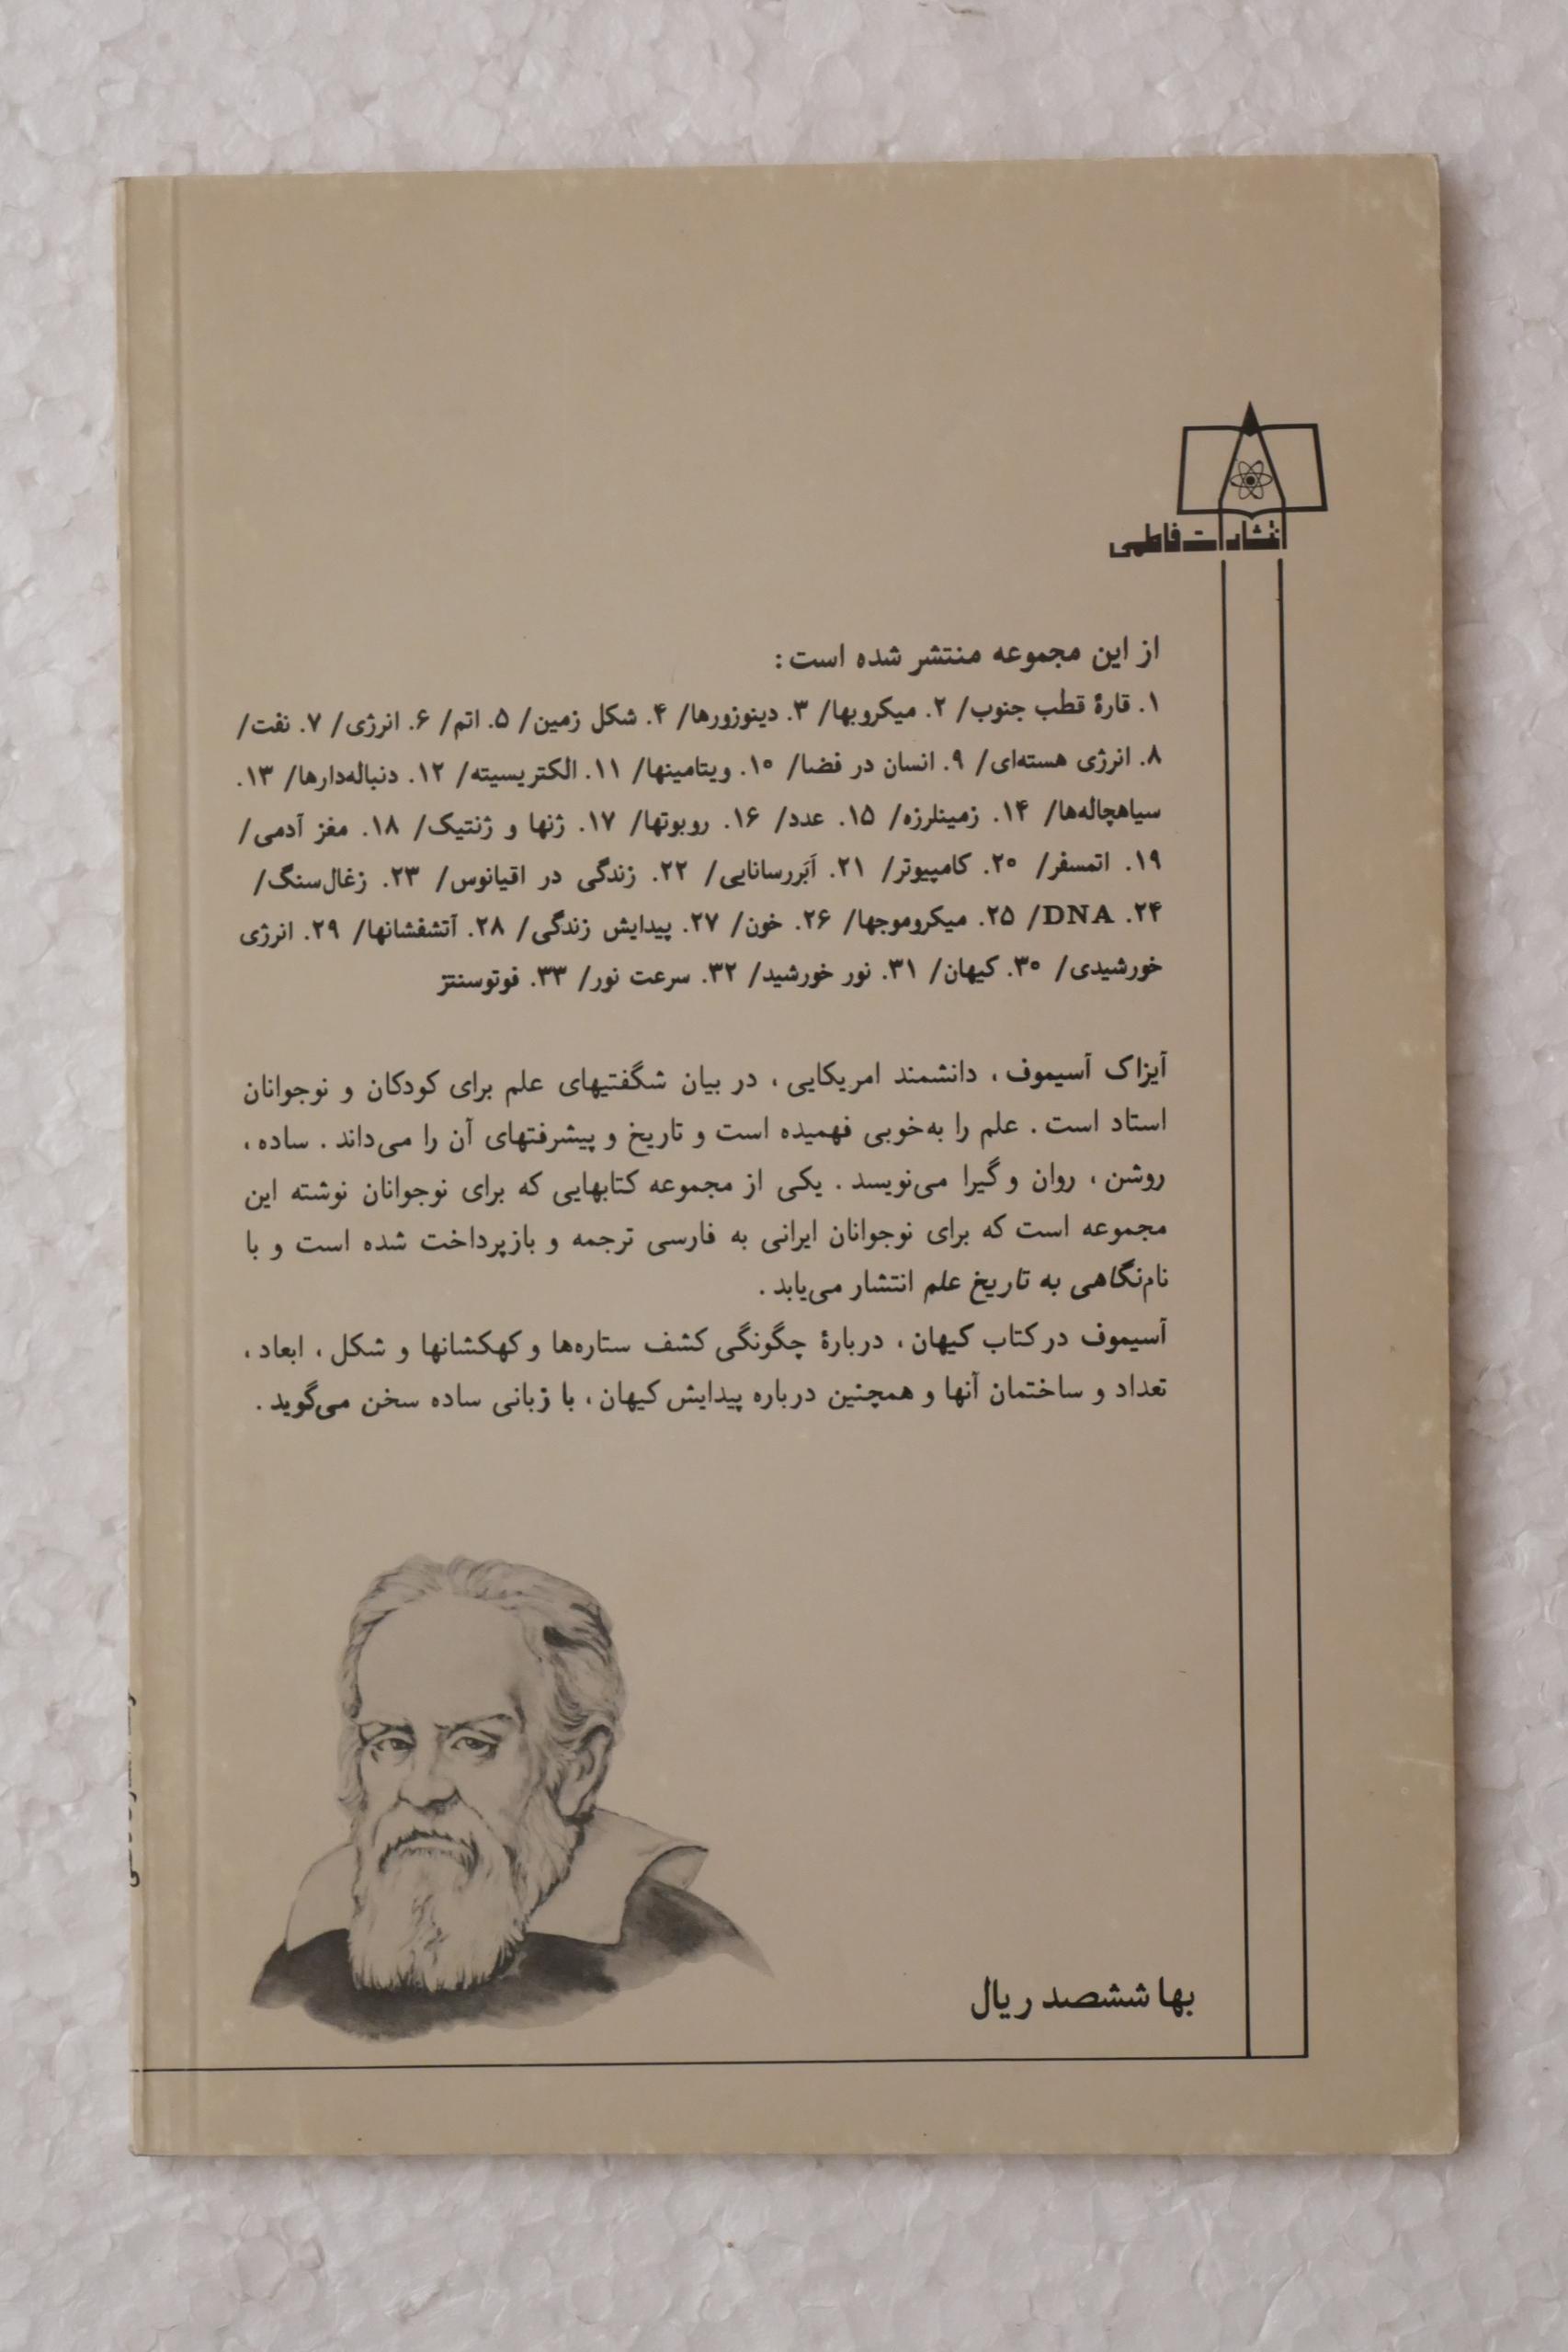 انتشارات فاطمی
از این مجموعه منتشر شده است:
۱. قارهٔ قطب جنوب/ ۲. میکروبها/ ۳. دینوزورها/ ۴. شکل زمین/ ۵. اتم/ ۶. انرژی/ ۷. نفت/
۸. انرژی هسته‌ای/ ۹. انسان در فضا/ ۱۰. ویتامینها/ ۱۱. الکتریسیته/ ۱۲. دنباله‌دارها/ ۱۳.
سیاهچاله‌ها/ ۱۴. زمینلرزه/ ۱۵. عدد/ ۱۶. روبوتها/ ۱۷. ژنها و ژنتیک/ ۱۸. مغز آدمی/
۱۹. اتمسفر/ ۲۰. کامپیوتر/ ۲۱. اَبَررسانایی/ ۲۲. زندگی در اقیانوس/ ۲۳. زغال‌سنگ/
۲۴. DNA/ ۲۵. میکروموجها/ ۲۶. خون/ ۲۷. پیدایش زندگی/ ۲۸. آتشفشانها/ ۲۹. انرژی
خورشیدی/ ۳۰. کیهان/ ۳۱. نور خورشید/ ۳۲. سرعت نور/ ۳۳. فوتوسنتز
آیزاک آسیموف، دانشمند امریکایی، در بیان شگفتیهای علم برای کودکان و نوجوانان
استاد است. علم را به‌خوبی فهمیده است و تاریخ و پیشرفتهای آن را می‌داند. ساده،
روشن، روان و گیرا می‌نویسد. یکی از مجموعه کتابهایی که برای نوجوانان نوشته این
مجموعه است که برای نوجوانان ایرانی به فارسی ترجمه و بازپرداخت شده است و با
نام نگاهی به تاریخ علم انتشار می‌یابد.
آسیموف در کتاب کیهان، دربارهٔ چگونگی کشف ستاره‌ها و کهکشانها و شکل، ابعاد،
تعداد و ساختمان آنها و همچنین درباره پیدایش کیهان، با زبانی ساده سخن می‌گوید.
بها ششصد ریال